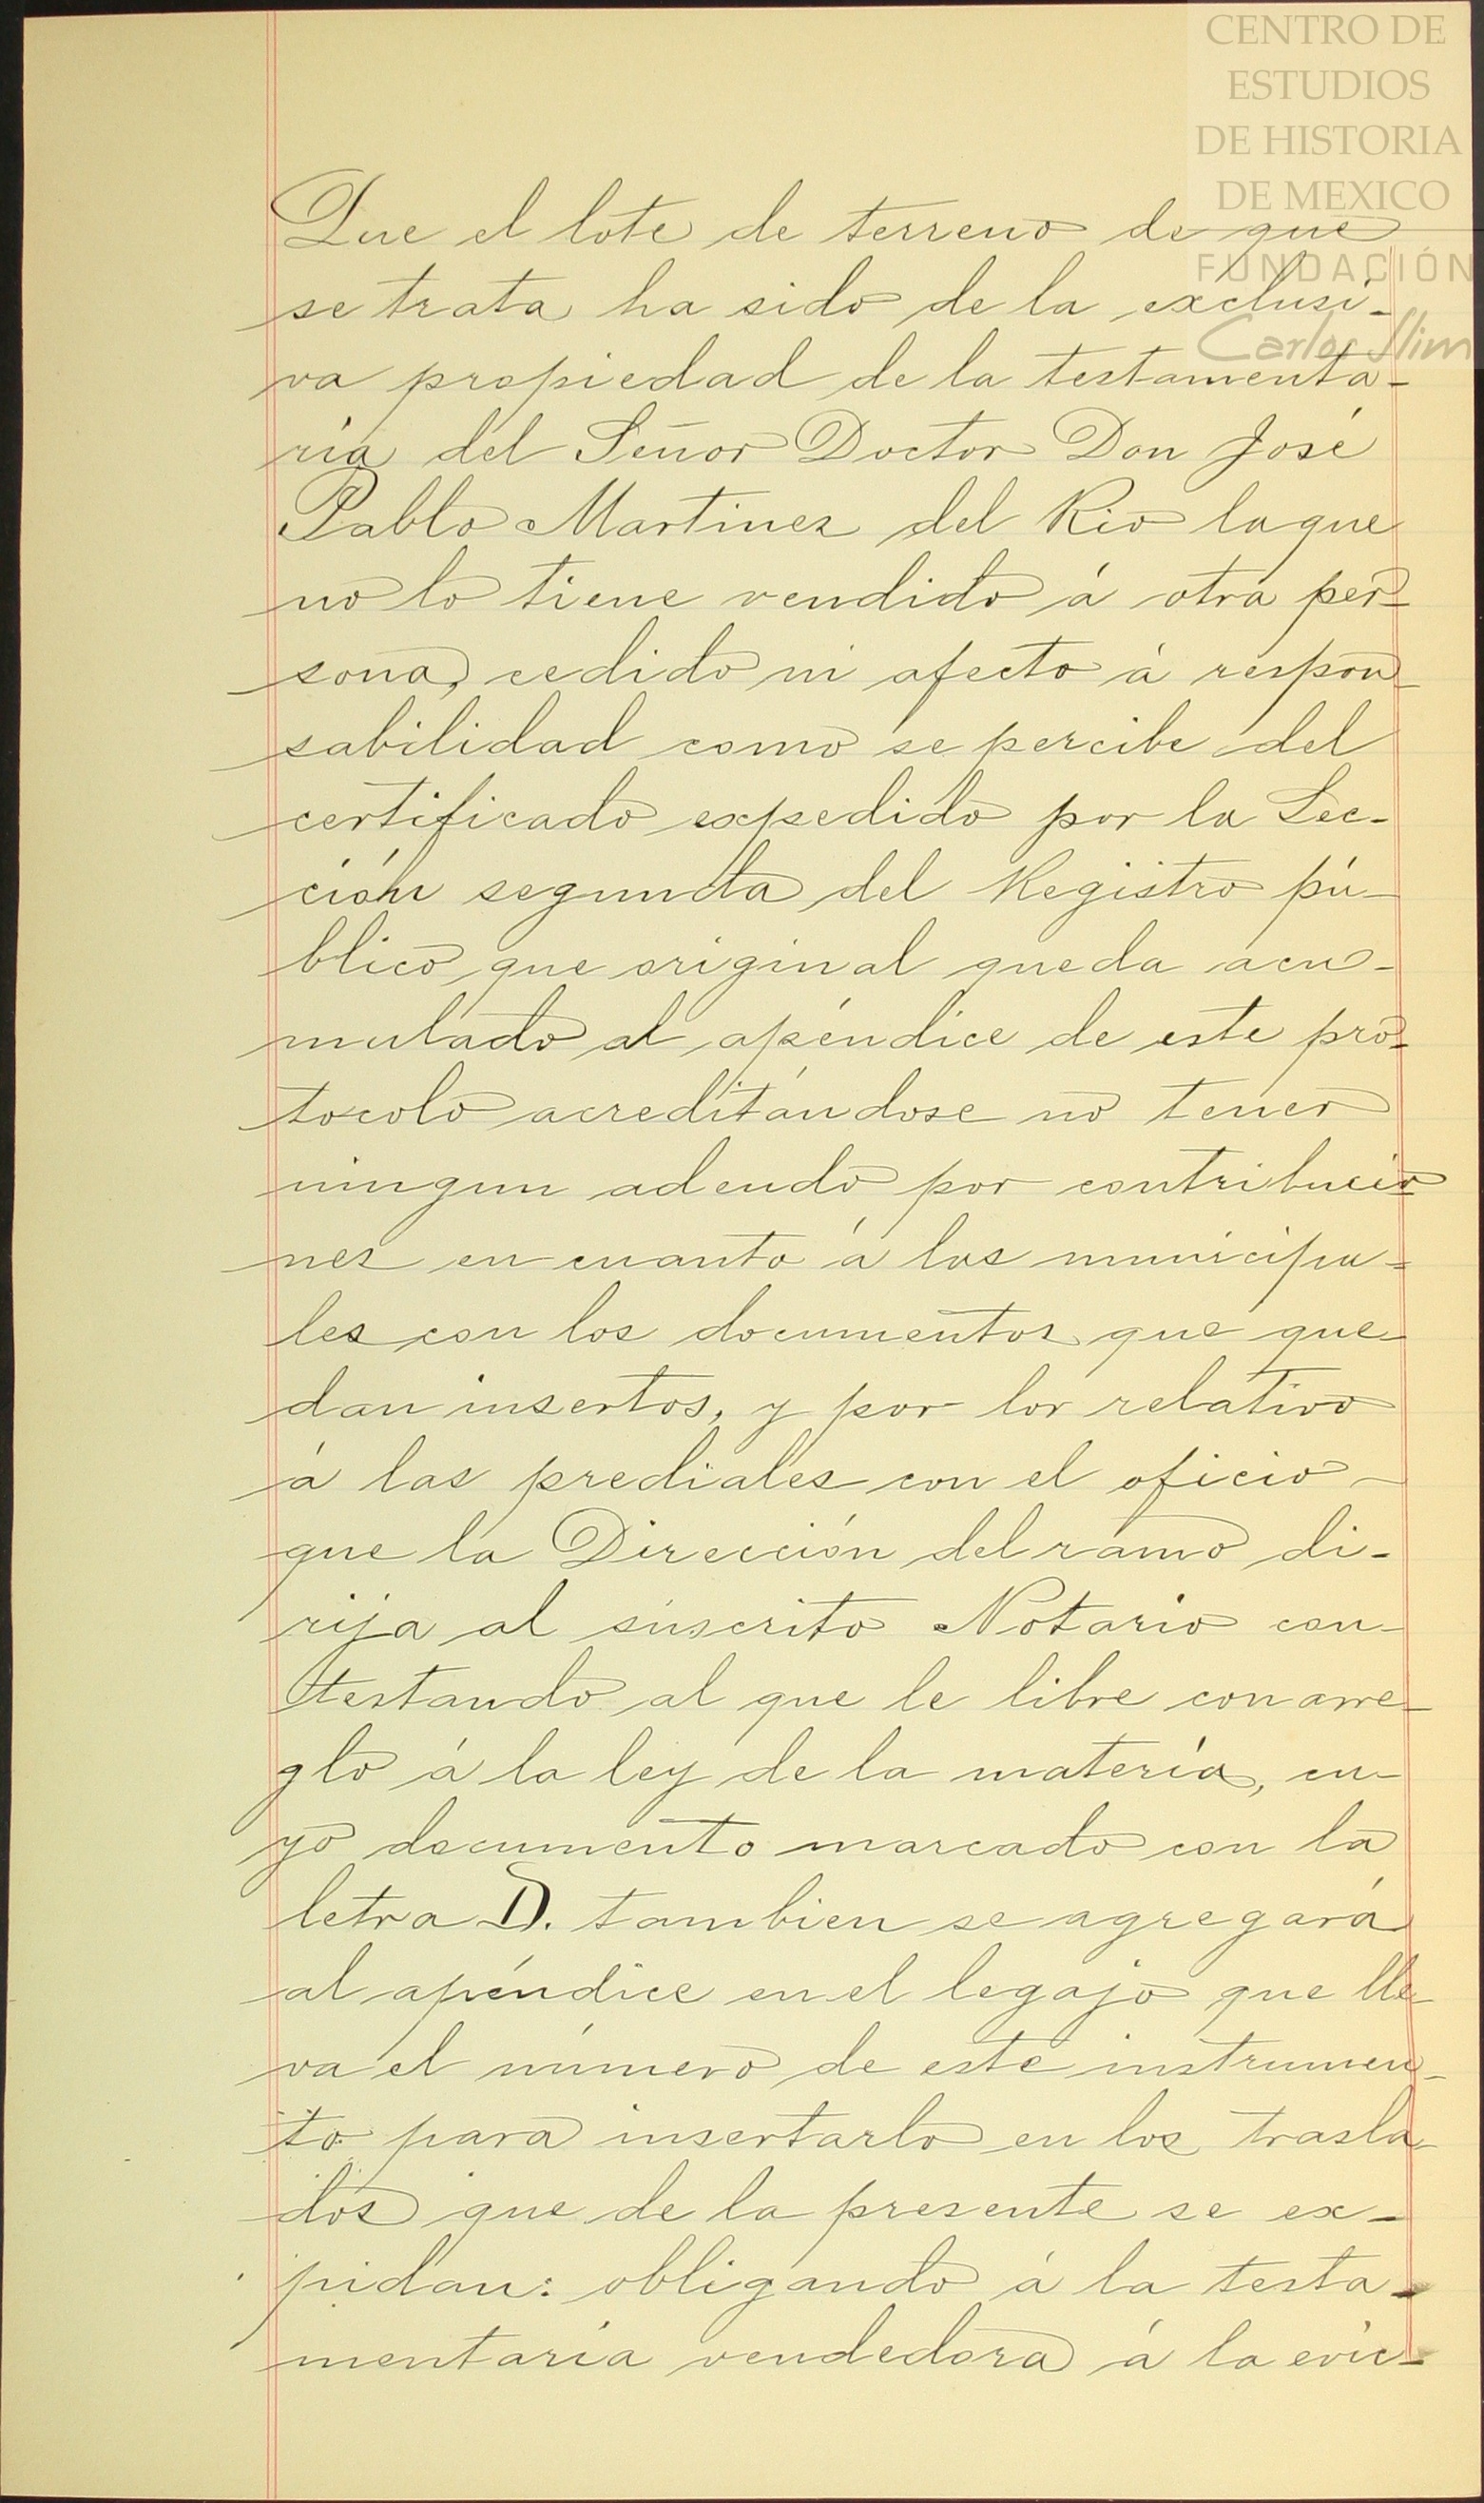 CENTRO DE
ESTUDIOS
DE HISTORIA
DE MEXICO
FUNDACIÓN
Carlos Slim
Que el lote de terreno de que
se trata ha sido de la exclusi-
va propiedad de la testamenta-
ría del Señor Doctor Don José
Pablo Martinez del Rio la que
no lo tiene vendido á otra per-
sona, cedido ni afecto á respon-
sabilidad como se percibe del
certificado expedido por la Sec-
ción segunda del Registro pú-
blico que original queda acu-
mulado al apéndice de este pro-
tocolo acreditándose no tener
ningun adeudo por contribucio
nes en cuanto á las municipa-
les con los documentos que que-
dan insertos, y por lor relativo
á las prediales con el oficio
que la Dirección del ramo di-
rija al suscrito Notario con-
testando al que le libre con arre-
glo á la ley de la materia, cu-
yo documento marcado con la
letra D. tambien se agregará
al apéndice en el legajo que lle-
va el número de este instrumen-
to para insertarlo en los trasla-
dos que de la presente se ex-
pidan: obligando á la testa-
mentaría vendedora á la evic-